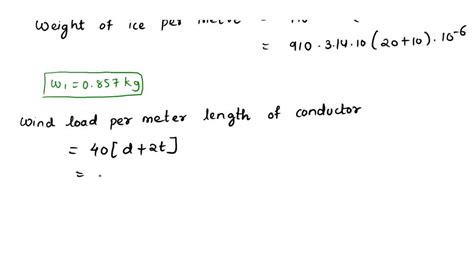 Weight of ice per metre =
= 910 · 3.14 · 10 (20+10) · 10^-6
w1 = 0.857 kg
wind load per meter length of conductor
= 40 [ d + 2t ]
= .